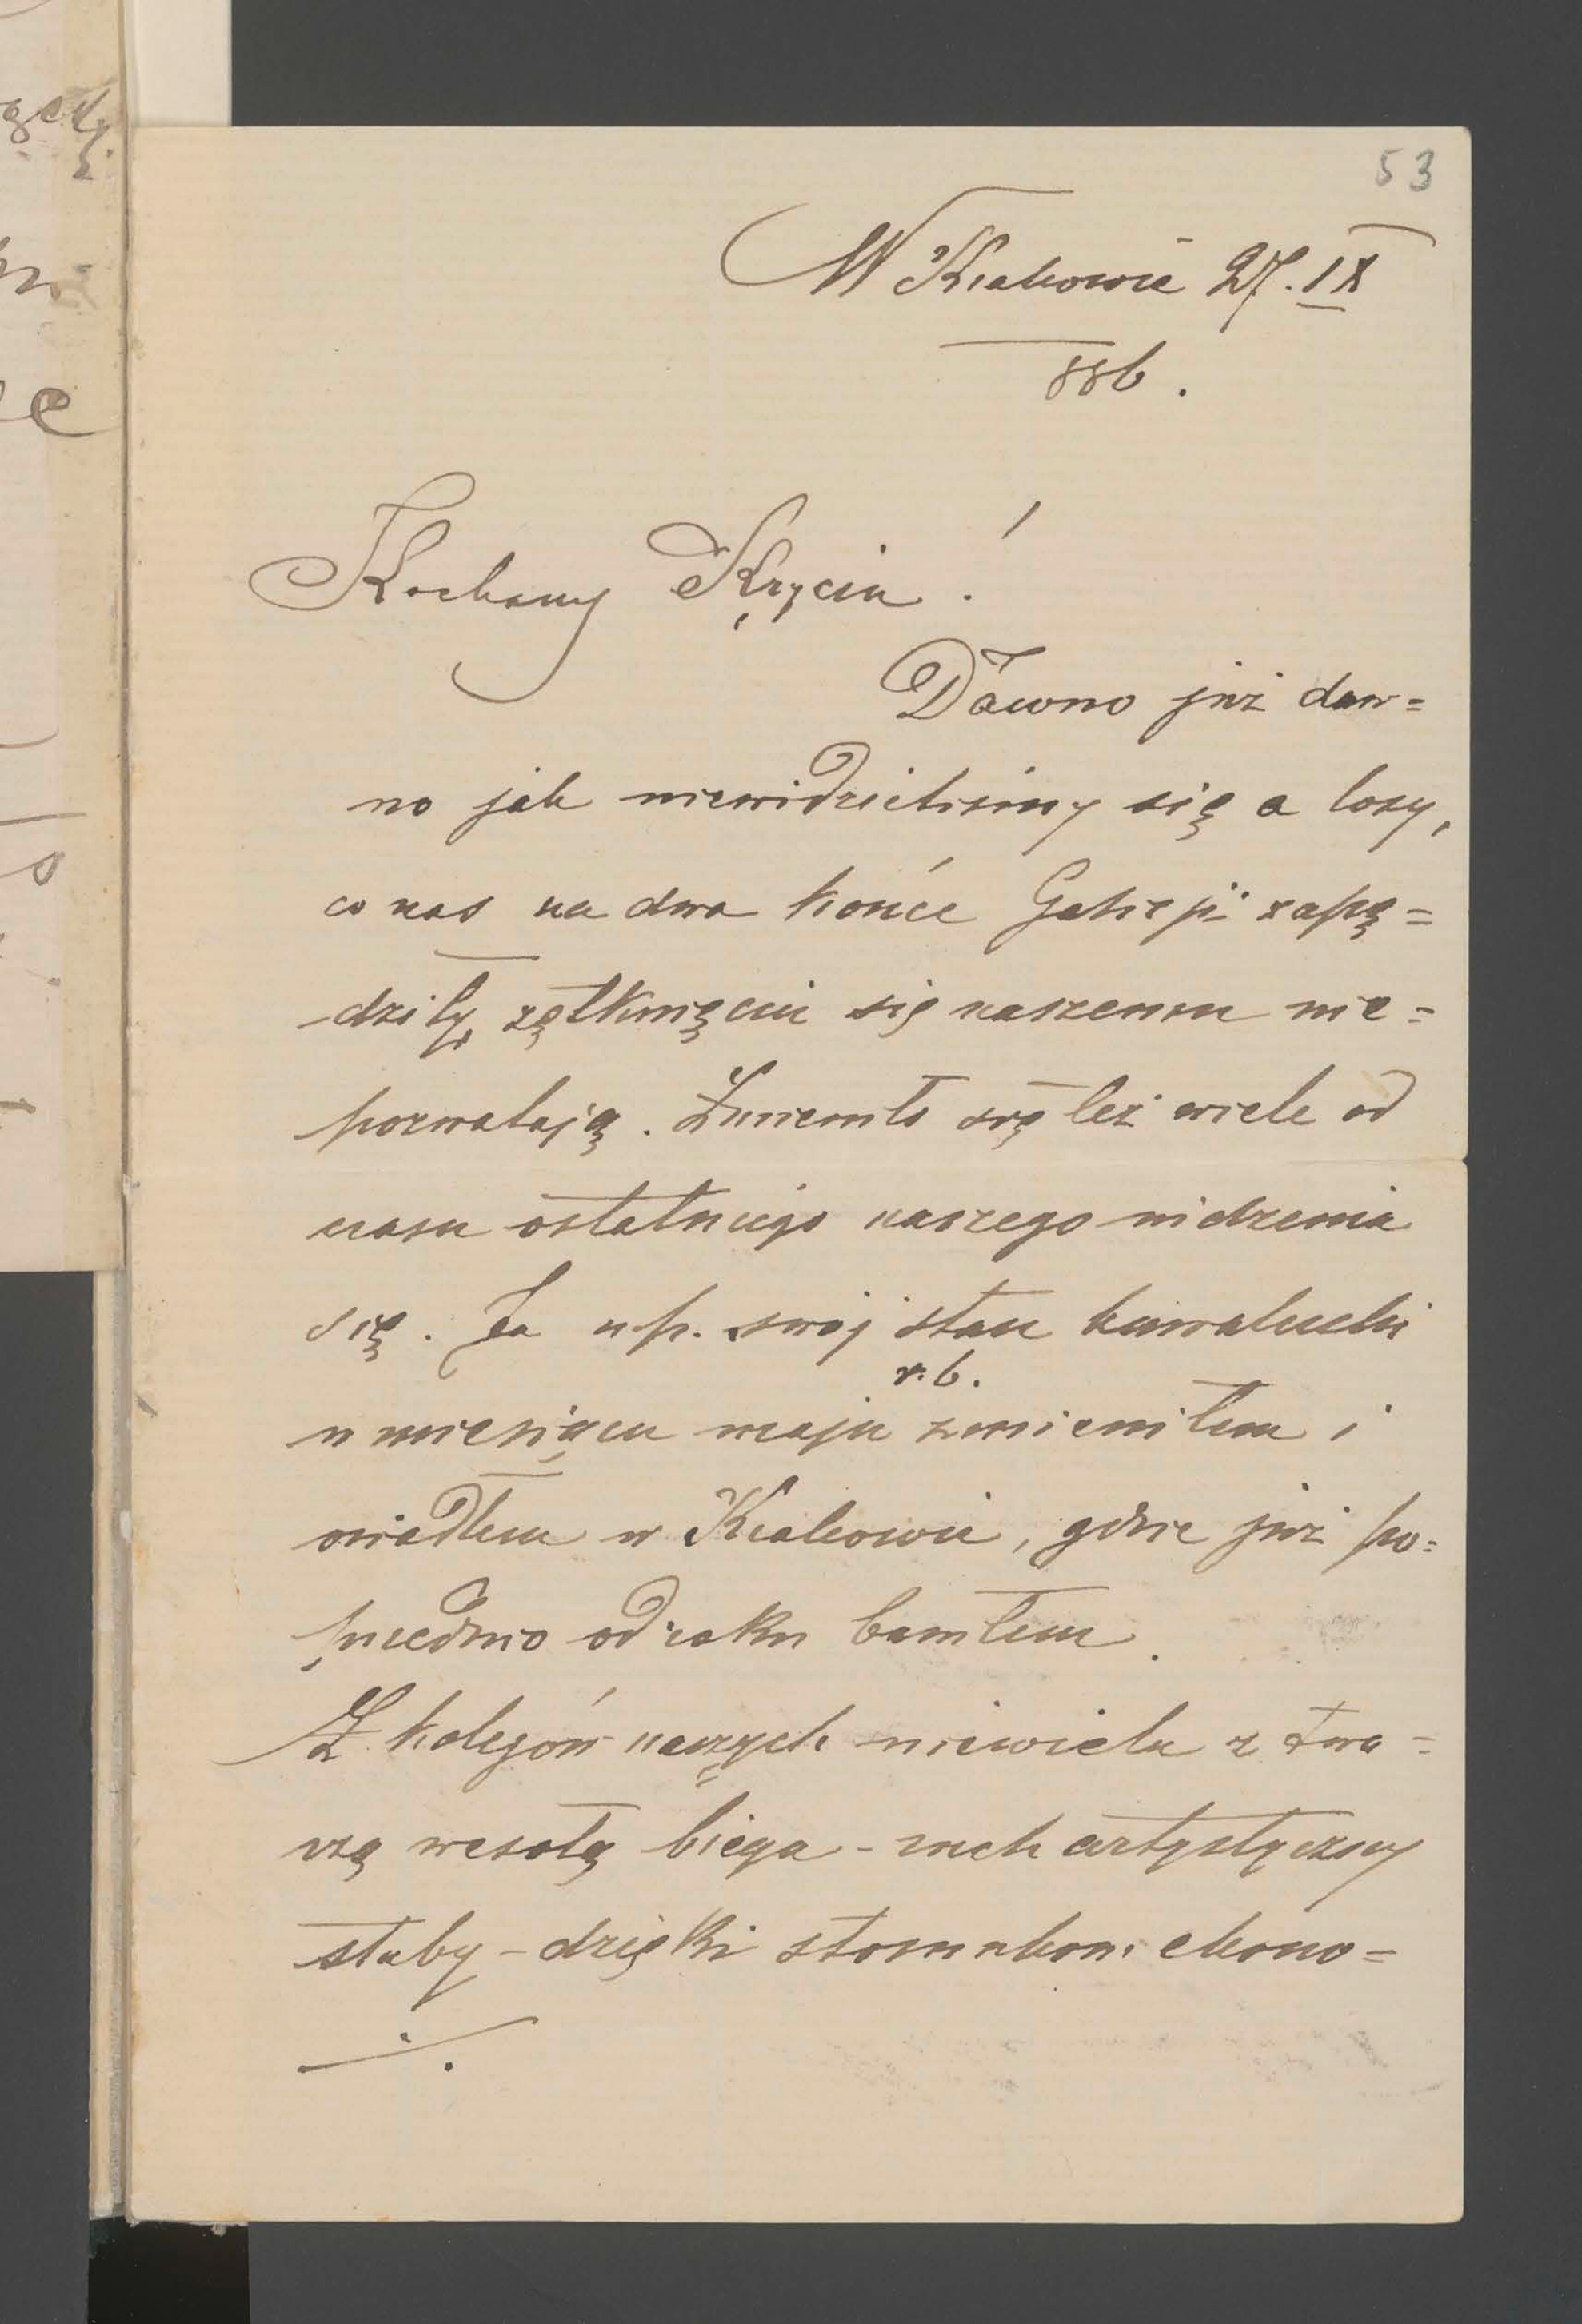 53
W Krakowie 27. IX
886.
Kochany Krzyciu!
Dawno już daw=
no jak niewidzieliśmy się a losy,
co nas na dwa końce Galicji zapę=
dziły, zętknięciu się naszemu nie=
pozwalają. Zmieniło się też wiele od
czasu ostatniego naszego widzenia
się. Ja np. swój stan kawalerski
r. b.
w miesiącu maju zmieniłem i
osiadłem w Krakowie, gdzie już po=
przednio od roku bawiłem.
Z kolegów naszych niewielu z twa=
rzą wesołą biega - ruch artystyczny
słaby - dzięki stosunkom ekono=
./.